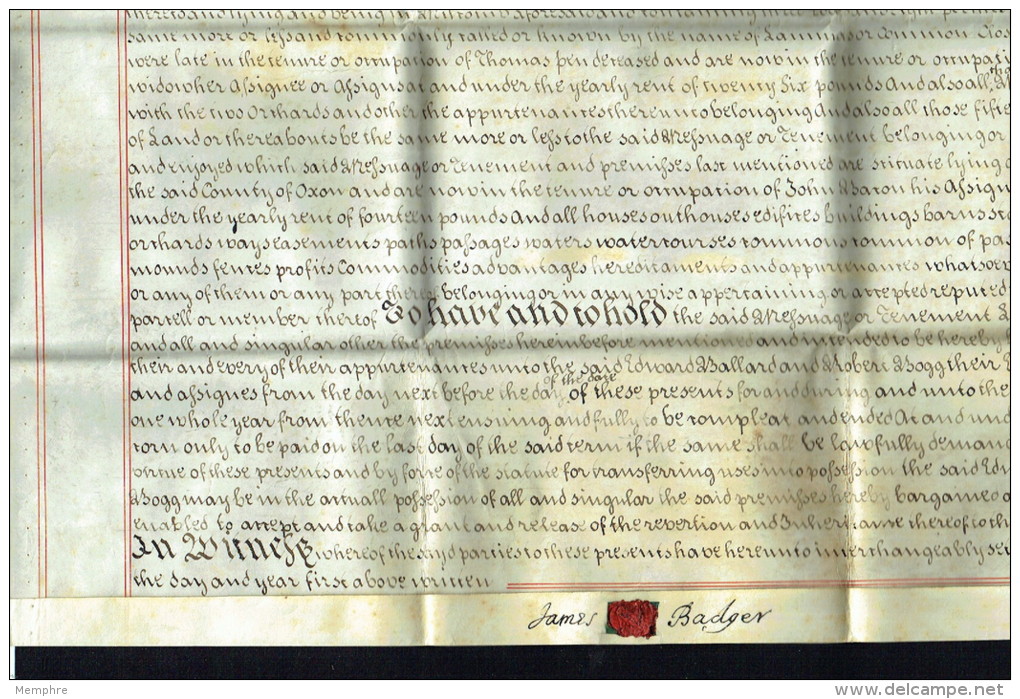 same more or less and commonly called or known by the name of Lammas or Common Clos
were late in the tenure or occupation of Thomas Pen deceased and are now in the tenure or occupati
widow her Assignee or Assigns at and under the yearly rent of twenty six pounds And also all th
with the two Orchards and other the appurtenantes thereunto belonging And also all those fifte
of Land or thereabouts be the same more or less to the said Messuage or Tenement belonging or
and enjoyed which said Messuage or Tenement and premisses last mentioned are scituate lying
the said County of Oxon and are now in the tenure or occupation of John Bacon his Assign
under the yearly rent of fourteen pounds And all houses outhouses edifices buildings barns sta
orchards ways easements paths passages waters watercourses commons common of pas
mounds fences profits Commodities advantages hereditaments and appurtenances whatsoev
or any of them or any part thereof belonging or in any wise appertaining or accepted reputed
parcell or member thereof To have and to hold the said Messuage or Tenement
and all and singular other the premisses herein before mentioned and intended to be hereby
their and every of their appurtenances unto the said Edward Ballard and Robert Bogg their
and assignes from the day next before the day of the date of these presents for and during and unto the
one whole year from thence next ensuing and fully to be compleat and ended At and und
corn only to be paid on the last day of the said term if the same shall be lawfully demand
vertue of these presents and by force of the statute for transferring uses into possession the said Edw
Bogg may be in the actuall possession of all and singular the said premisses hereby bargained
enabled to accept and take a grant and release of the revertion and Inheritance thereof to th
In Witness whereof the said parties to these presents have hereunto interchangeably set
the day and year first above written
James Badger
Memphre
www.delcampe.net